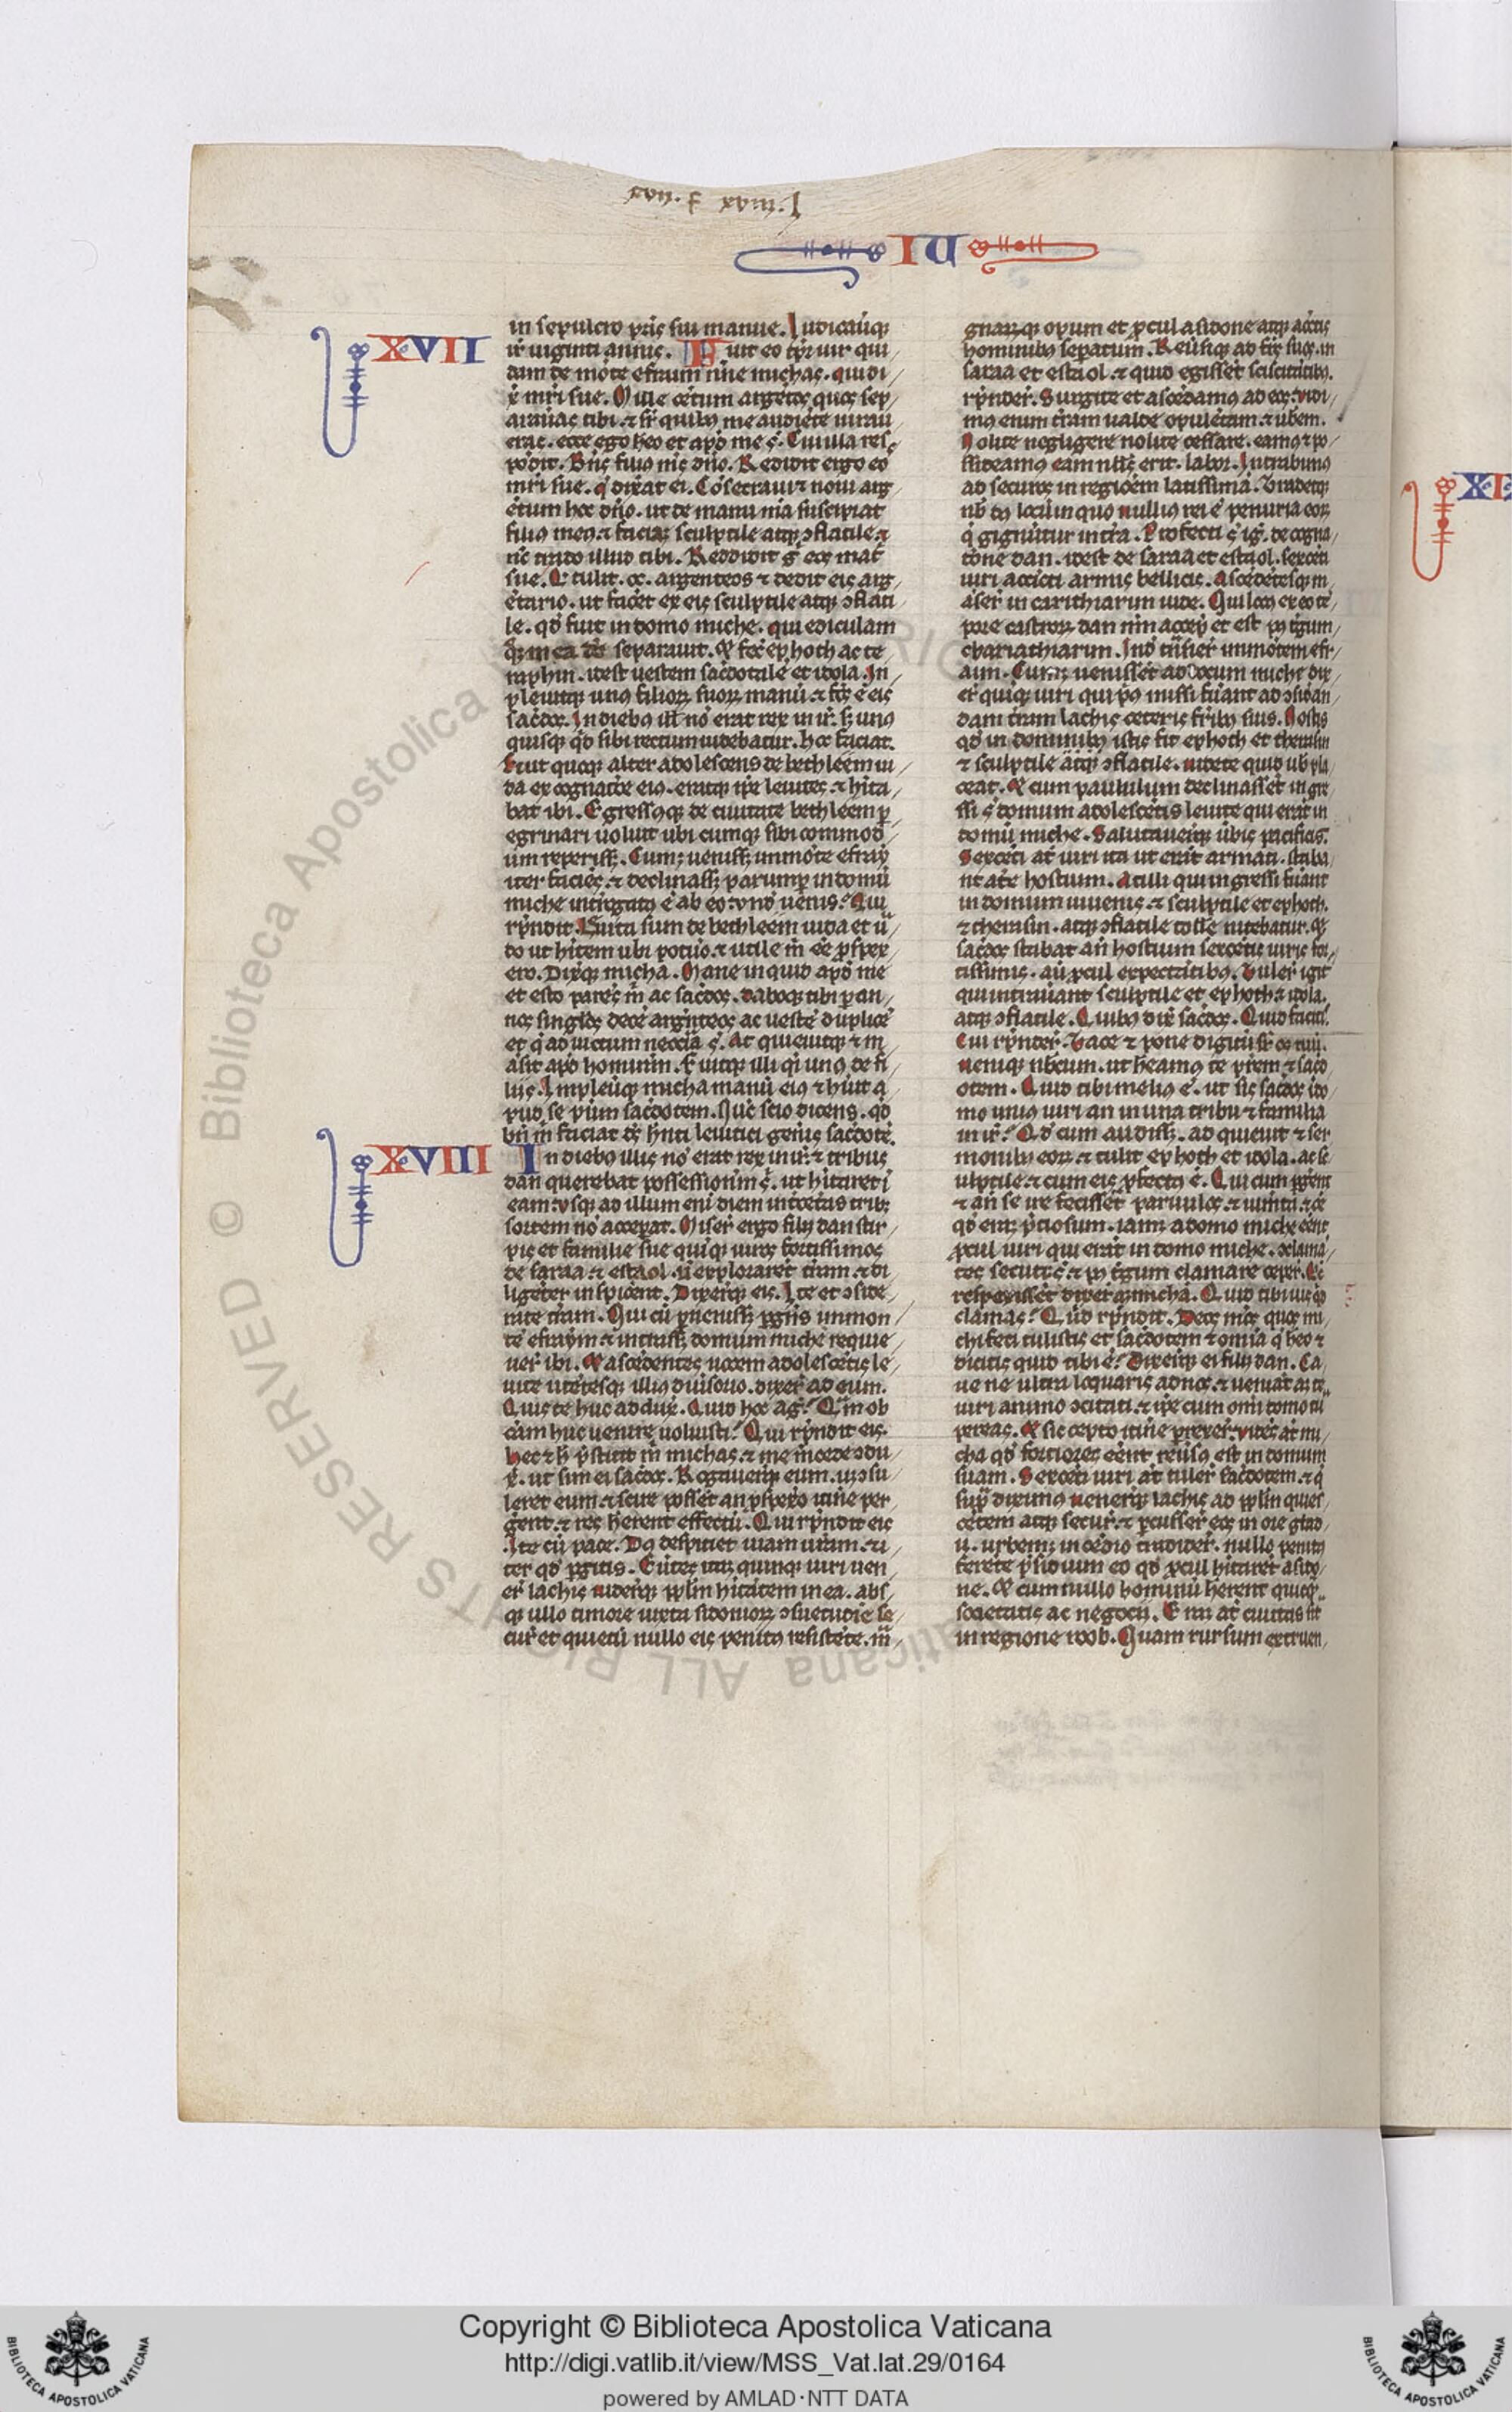 IU
XVII
in sepulcro pris sui manue. Iudicauitq
isr uiginti annis. Fuit eo tpr uir qui
dam de mote efraim nomine michas. qui di
xit mri sue. Mille centum argenteos quos sep
araueras tibi. et sr quibus me audiente iuraue
eras. ecce ego heo et apd me st. Cui illa res
pondit. Bns filius ms dno. Reddidit ergo eos
mri sue. que dixerat ei. Consecraui et noui arg
entum hoc dno. ut de manu mea suscipiat
filius meus et faciat sculptile atq conflatile et
nc trado illud tibi. Reddidit g eos matri
sue. Que tulit .cc. argenteos et dedit eis arg
entario. ut faceret ex eis sculptile atq conflati
le. qd fuit in domo miche. qui ediculam
separauit. Et fec ephoth ac te
raphin. idest uestem sacerdotale et idola. In
pleuitq unius filiorum suorum manum et fcs e ei
sacdos. In diebus illis no erat rex in isr. sed unus
quisq qd sibi rectum uidebatur. hoc faciebat.
Fuit quoq alter adolescens de bethleem iu
da ex cognatione eius. eratq ipse leuites et hita
bat ibi. Egressusq de ciuitate bethleem p
egrinari uoluit ubicumq sibi commod
um reperisset. Cumq uenisset in monte efraym
iter faciens et declinasset parumper in domum
miche interrogatus e ab eo. unde uenis? Qui
rpndit. Leuita sum de bethleem iuda et ua
do ut hitem ubi potuero. et utile m ee pspex
ero. Dixitq micha. Mane inquid apd me
et esto parens m ac sacdos. daboq tibi per an
nos singlos dece argenteos ac ueste duplice
et q ad uictum necessaria st. Acquieuitq et m
ansit apd hominem. Fuitq illi qi unus de fi
liis. Impleuitq micha manum eius et habuit a
pud se puerum sacdotem. Nuc scio dicens. qd
bn m faciat ds hnti leuitici generis sacdote.
XVIII
In diebus illis no erat rex in isr. et tribus
dan querebat possessionem s. ut hitaret i
ea. usq ad illum eni diem inter ceteras trib
sortem no acceperat. Miser ergo filii dan stir
pis et familie sue quiq uiros fortissimos
de saraa et estaol. ut explorarent terram et di
ligenter inspicerent. Dixerq eis. Ite et conside
rate terram. Qui cu pgentes uenissent in mon
te efraym et intrassent domum miche requie
uer ibi. Et ascendentes uocem adolescetis le
uite utentesq illius diuersorio. dixer ad eum.
Quis te huc adduxit. Quid hoc agis? Quam ob
cam huc uenire uoluisti? Qui rpndit eis.
hec et h pstitit m michas. et me mercede condu
xit. ut sim ei sacdos. Rogauerq eum. ut consu
leret dnm et scire possent an pspero itine per
gent. et res herent effectu. Qui rpndit eis
Ite cu pace. Ds respiciet uiam uram. et i
ter qd pgitis. Euntes itaq quinq uiri uen
er lachis uiderq pplm hitatem in ea. abs
q ullo timore iuxta sidoniorum consuetudine se
curu et quietu nullo eis penitus resistete. m
gnarumq opum et pcul a sidone atq actis
hominibus separatum. Reuersiq ad frs suos. in
saraa et estaol. et quid egissent sciscitatibus.
rpnder. Surgite et ascendamus ad eos. uidi
mus enim terram ualde opulentam et uberem.
Nolite negligere nolite cessare. eamus et po
ssideamus eam nllus erit labor. Intrabimus
ad securos in regionem latissimam. Tradetq
nob dns locum in quo nullius rei e penuria eorum
q gignuntur in terra. Profecti st igr de cogna
tione dan. idest de saraa et estaol. sexcenti
uiri accincti armis bellicis. Ascedetesq m
anser in carithiarim iude. Qui locus ex eo te
pore castrorum dan nomen accepit et est post tergum
chariathiarim. Ind transier in montem efr
aim. Cumq uenissent ad domum miche dix
er quiq uiri qui prius missi fuerant ad conside
dam terram lachis ceteris fribus suis. Nostis
qd in domibus istis sit ephoth et theraphin
et sculptile atq conflatile. uidete quid uobis pla
ceat. Et cum paululum declinasset ingre
ssi st domum adolescetis leuite qui erat in
domu miche. Salutauerq uerbis pacificis.
Sexcenti at uiri ita ut erat armati. staba
nt ante hostium. At illi qui ingressi fuerant
in domum iuuenis et sculptile et ephoth.
et theraphin. atq conflatile tollere nitebatur. et
sacdos stabat an hostium sexcentis uiris for
tissimis. haud pcul expectatibus. Tuler igr
qui intrauerant sculptile et ephoth et idola.
atq conflatile. Quibus dix sacdos. Quid facitis?
Cui rpnder. Tace et pone digitu sr os tuu.
uenique nobcum. ut heamus te prem et sacd
otem. Quid tibi melius e. ut sis sacdos i do
mo unius uiri an in una tribu et familia
in isr? Qd cum audisset. adquieuit et ser
monibus eorum. et tulit ephoth et idola. ac sc
ulptile. et cum eis pfectus e. Qui cum pgerent
et an se ire fecissent paruulos et iumta. et oe
qd erat ptiosum. iamq a domo miche eent
pcul uiri qui erat in domo miche. conclama
tes secuti st. et post tergum clamare ceper. Qi
respexisset dixerunt micha. Quid tibi uis q
clamas? Qui rpndit. Deos mos quos mi
chi feci tulistis et sacdotem et omia q heo et
dicitis quid tibi e? Dixerq ei filii dan. Ca
ue ne ultra loquaris ad nos. et ueniat ad te
uiri animo concitati. et ipse cum omi domo tua
pereas. Et sic cepto itine prexer. uides at mi
cha qd fortiores eent reusus est in domum
suam. Sexceti uiri at tuler sacdotem. et q
supra diximus uenerq lachis ad pplm quies
cetem atq secur. et pcusser eos in ore glad
ii. urbemq incedio tradider. nullo penitus
ferete psidium eo qd pcul hitaret a sido
ne. Et cum nullo hominum herent quicq
societatis ac negotii. Erat at ciuitas sit
in regione roob. Quam rursum extruen
Copyright © Biblioteca Apostolica Vaticana
http://digi.vatlib.it/view/MSS_Vat.lat.29/0164
powered by AMLAD·NTT DATA